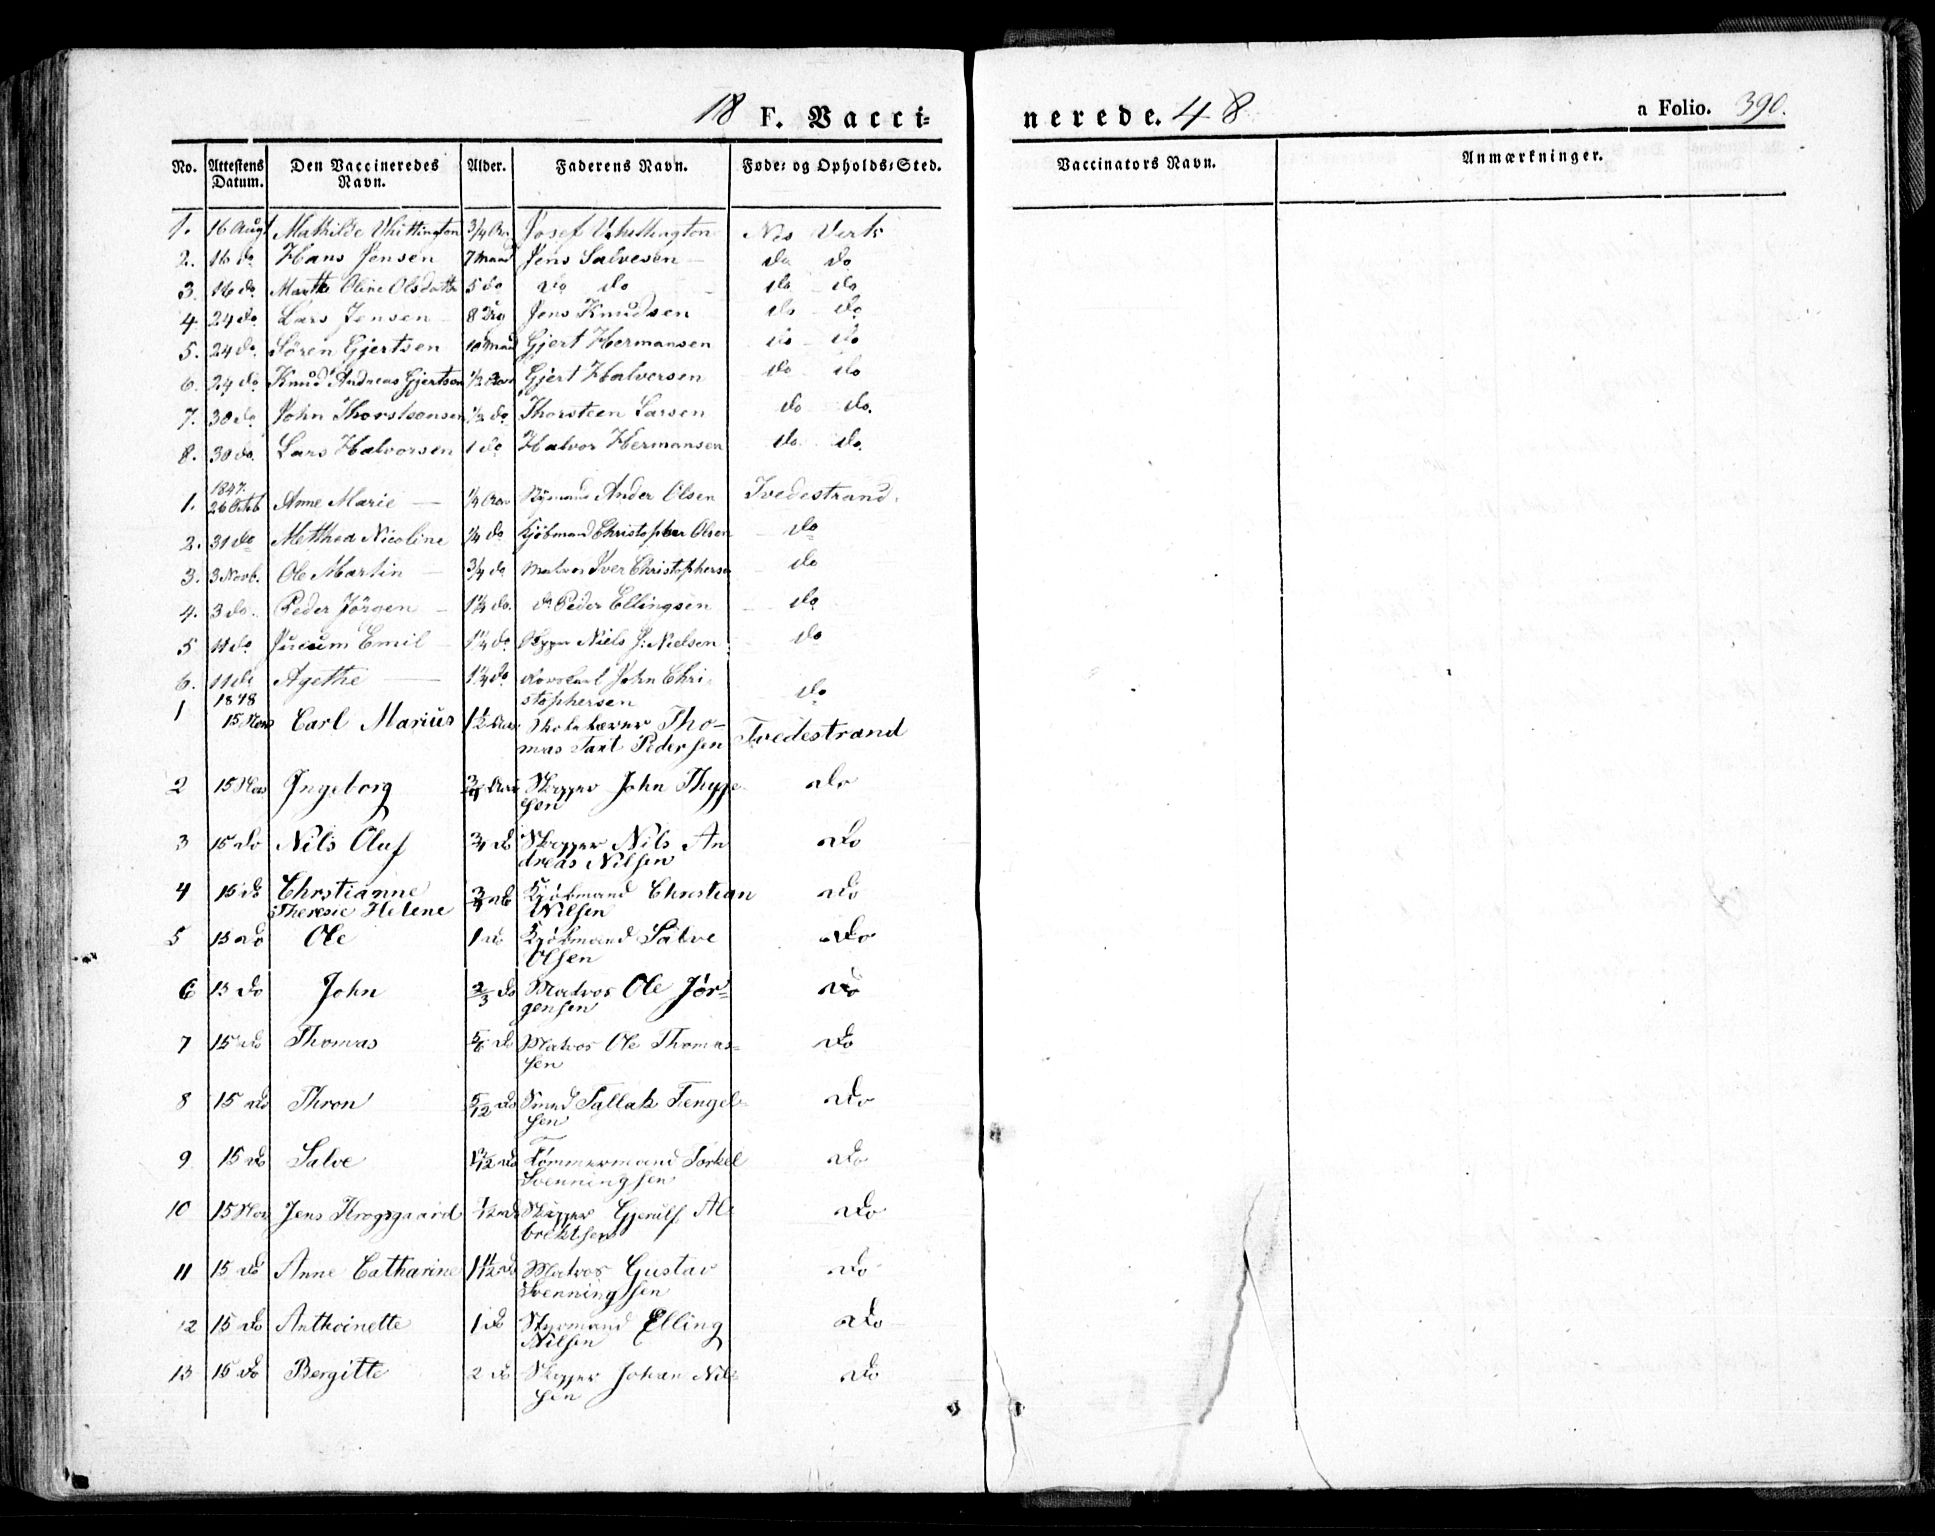 18 F. Vacci-
nerede. 48
a Folio. 390.
No. Attestens Datum. Den Vaccineredes Navn. Alder. Faderens Navn. Føde- og Opholds-Sted. Vaccinators Navn. Anmærkninger.
1. 16 Aug Mathilde Whittington 3/4 Josef Whittington Nes Verk
2. 16 do Hans Jensen 7 Jens Salvesen do do
3. 16 do Marthe Oline Olsdatter 5 do do do do do
4. 24 do Lars Jensen 8 Jens Knudsen do do
5. 24 do. Søren Gjertsen 10 Gjert Hermansen do do
6. 24 do Knud Andreas Gjertsen 1/2 Gjert Halvorsen do do
7. 30 do John Thorstensen 1/2 do Thorsteen Larsen do do.
8. 30 do. Lars Halvorsen 1 do Halvor Hermansen do do.
1847.
1. 26 Octob Anne Marie 1/4 Ander Olsen Tvedestrand.
2. 31 do Metthea Nicoline 1/4 do Kjøbmand Christopher Olsen do
3. 3 Novb. Ole Martin 3/4 do Matros Iver Christophersen do
4. 3 do. Peder Jörgen 1 1/4 do. do Peder Ellingsen do
5 11 do Emil 1 1/4 do Niels J. Nielsen do
6. 11 do Agethe 1 1/4 do John Chri-
stophersen do
1848
1 15 Nov Carl Marius 1 1/2 Skolelærer Tho-
mas Tax Pedersen Tvedestrand
2 15 Nov Ingeborg 3/4 Skipper John Thyge-
sen do
3 15 do Nils Oluf 3/4 do Skipper Nils An
dreas Nilsen do
4 15 do Chrstianne 3/4 do Kjøbmand Christian
Theresie Helene Nilsen do
5 15 do Ole 1 do Kjøbmand Salve
Olsen do
6 15 do John 2/3 do Matros Ole Jør-
gensen do
7 15 do Thomas 5/6 do Matros Ole Thomas-
sen do
8 15 do Thron 5/12 do Smed Tallak Tengel-
sen do
9 15 do Salve do Tømmermand Torkel
Svenningsen do
10 15 Nov Jens Krogsgaard do Skipper Gjerulf Al-
brektsen do
11 15 do Anne Catharine 1 11/12 do Matros Gustav
Svenningsen do
12 15 do Anthoinette 1 do Styrmand Elling
Nilsen do
13 15 do Bergitte 2 do Skipper Johan Nil-
sen do